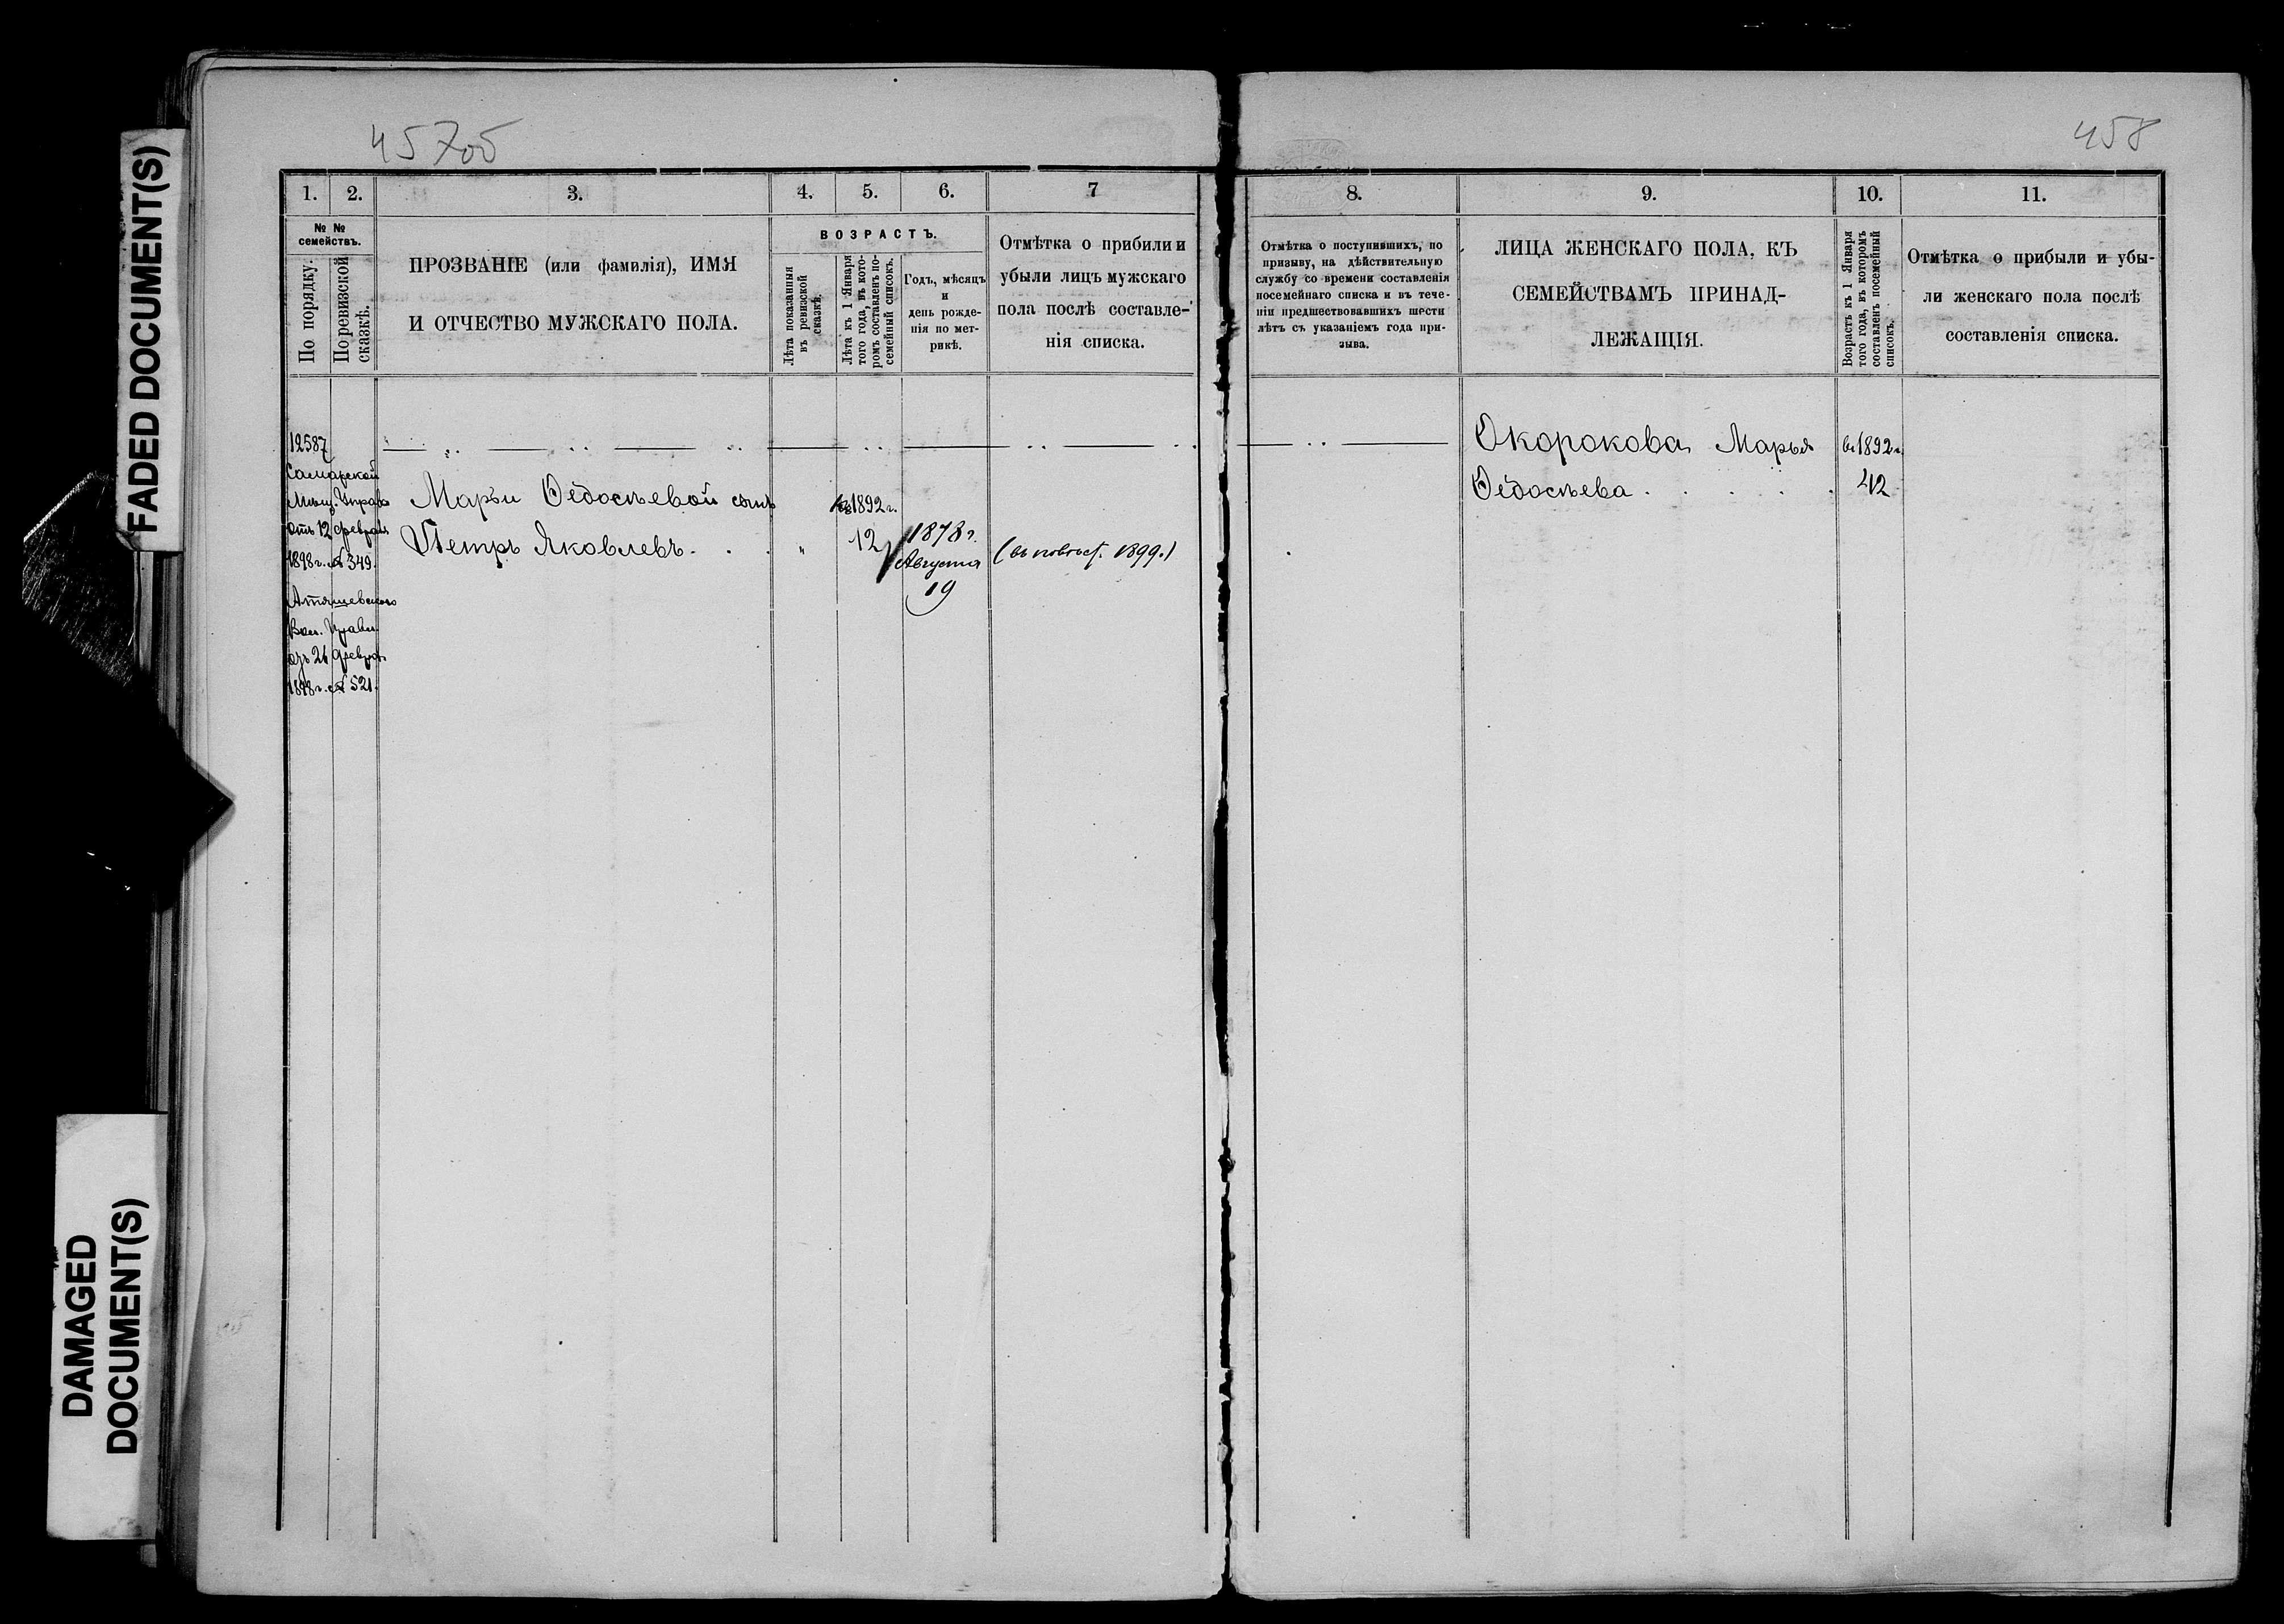 FADED DOCUMENT(S)
DAMAGED
DOCUMENT(S)
457об
1. 2. 3. 4. 5. 6. 7
№ №
семействъ.
По порядку.
По ревизской
сказкѣ.
ПРОЗВАНІЕ (или фамилія), ИМЯ
И ОТЧЕСТВО МУЖСКАГО ПОЛА.
ВОЗРАСТЪ.
Лѣта показанныя
въ ревизской
сказкѣ.
Лѣта къ 1 Января
того года, въ кото-
ромъ составленъ по-
семейный списокъ.
Годъ, мѣсяцъ
и
день рожде-
нія по мет-
рикѣ.
Отмѣтка о прибыли и
убыли лицъ мужскаго
пола послѣ составле-
нія списка.
12587
Самарской
Мѣщ. Управы
отъ 12 Февраля
1898 г. № 349.
Вол. Правл.
отъ 26 Февраля
1898 г. № 521.
Марьи Ѳедосѣевой сынъ въ 1892 г.
Петръ Яковлевъ. . . „ 12 1878 г.
Августа
19
1899.)
458
8. 9. 10. 11.
Отмѣтка о поступившихъ, по
призыву, на дѣйствительную
службу со времени составленія
посемейнаго списка и въ тече-
ніи предшествовавшихъ шести
лѣтъ съ указаніемъ года при-
зыва.
ЛИЦА ЖЕНСКАГО ПОЛА, КЪ
СЕМЕЙСТВАМЪ ПРИНАД-
ЛЕЖАЩІЯ.
Возрастъ къ 1 Января
того года, въ которомъ
составленъ посемейный
списокъ.
Отмѣтка о прибыли и убы-
ли женскаго пола послѣ
составленія списка.
Окорокова Марья въ 1892 г.
Ѳедосѣева . . . . . 42